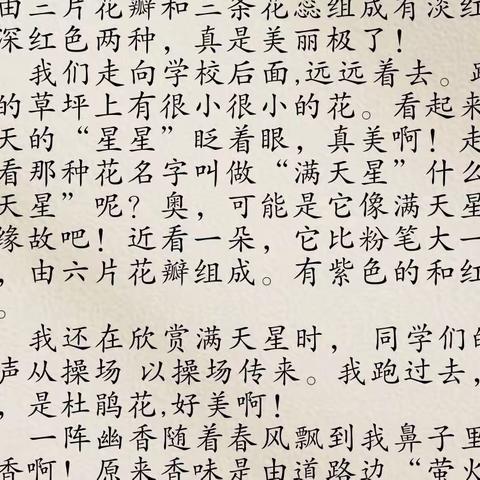 由三片花瓣和三条花蕊组成有淡红
深红色两种，真是美丽极了！
我们走向学校后面,远远着去。
的草坪上有很小很小的花。看起来
天的“星星”眨着眼，真美啊！走
看那种花名字叫做“满天星”什么
天星”呢？奥，可能是它像满天星
缘故吧！近看一朵，它比粉笔大一
，由六片花瓣组成。有紫色的和红
。
我还在欣赏满天星时， 同学们的
声从操场 以操场传来。我跑过去，
，是杜鹃花,好美啊！
一阵幽香随着春风飘到我鼻子里
香啊！原来香味是由道路边“萤火